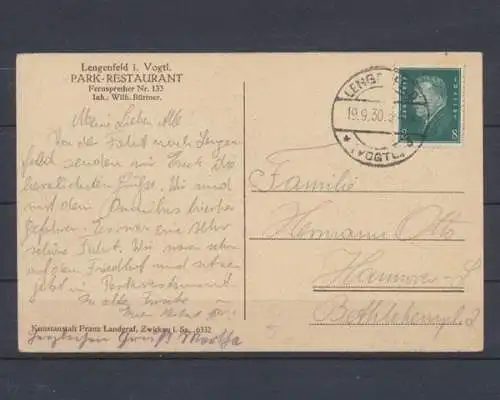 Lengenfeld i. Vogtl.
PARK-RESTAURANT
Fernsprecher Nr. 133
Inh. Wilh. Büttner.
Meine Lieben Alle
Von der Fahrt nach Lengen
feld senden wir Euch die
herzlichsten Grüße. Wir sind
mit dem Omnibus hierher
gefahren. Es war eine sehr
schöne Fahrt. Wir waren schon
auf dem Friedhof und sitzen
jetzt im Parkrestaurant
In alter Frische
Kunstanstalt Franz Landgraf, Zwickau i. Sa. 6332
Herzlichen Gruß Martha
LENG
19.9.30.
(VOGTL.)
8
Familie
Hermann Otto
Hannover-L
Bethlehempl. 2